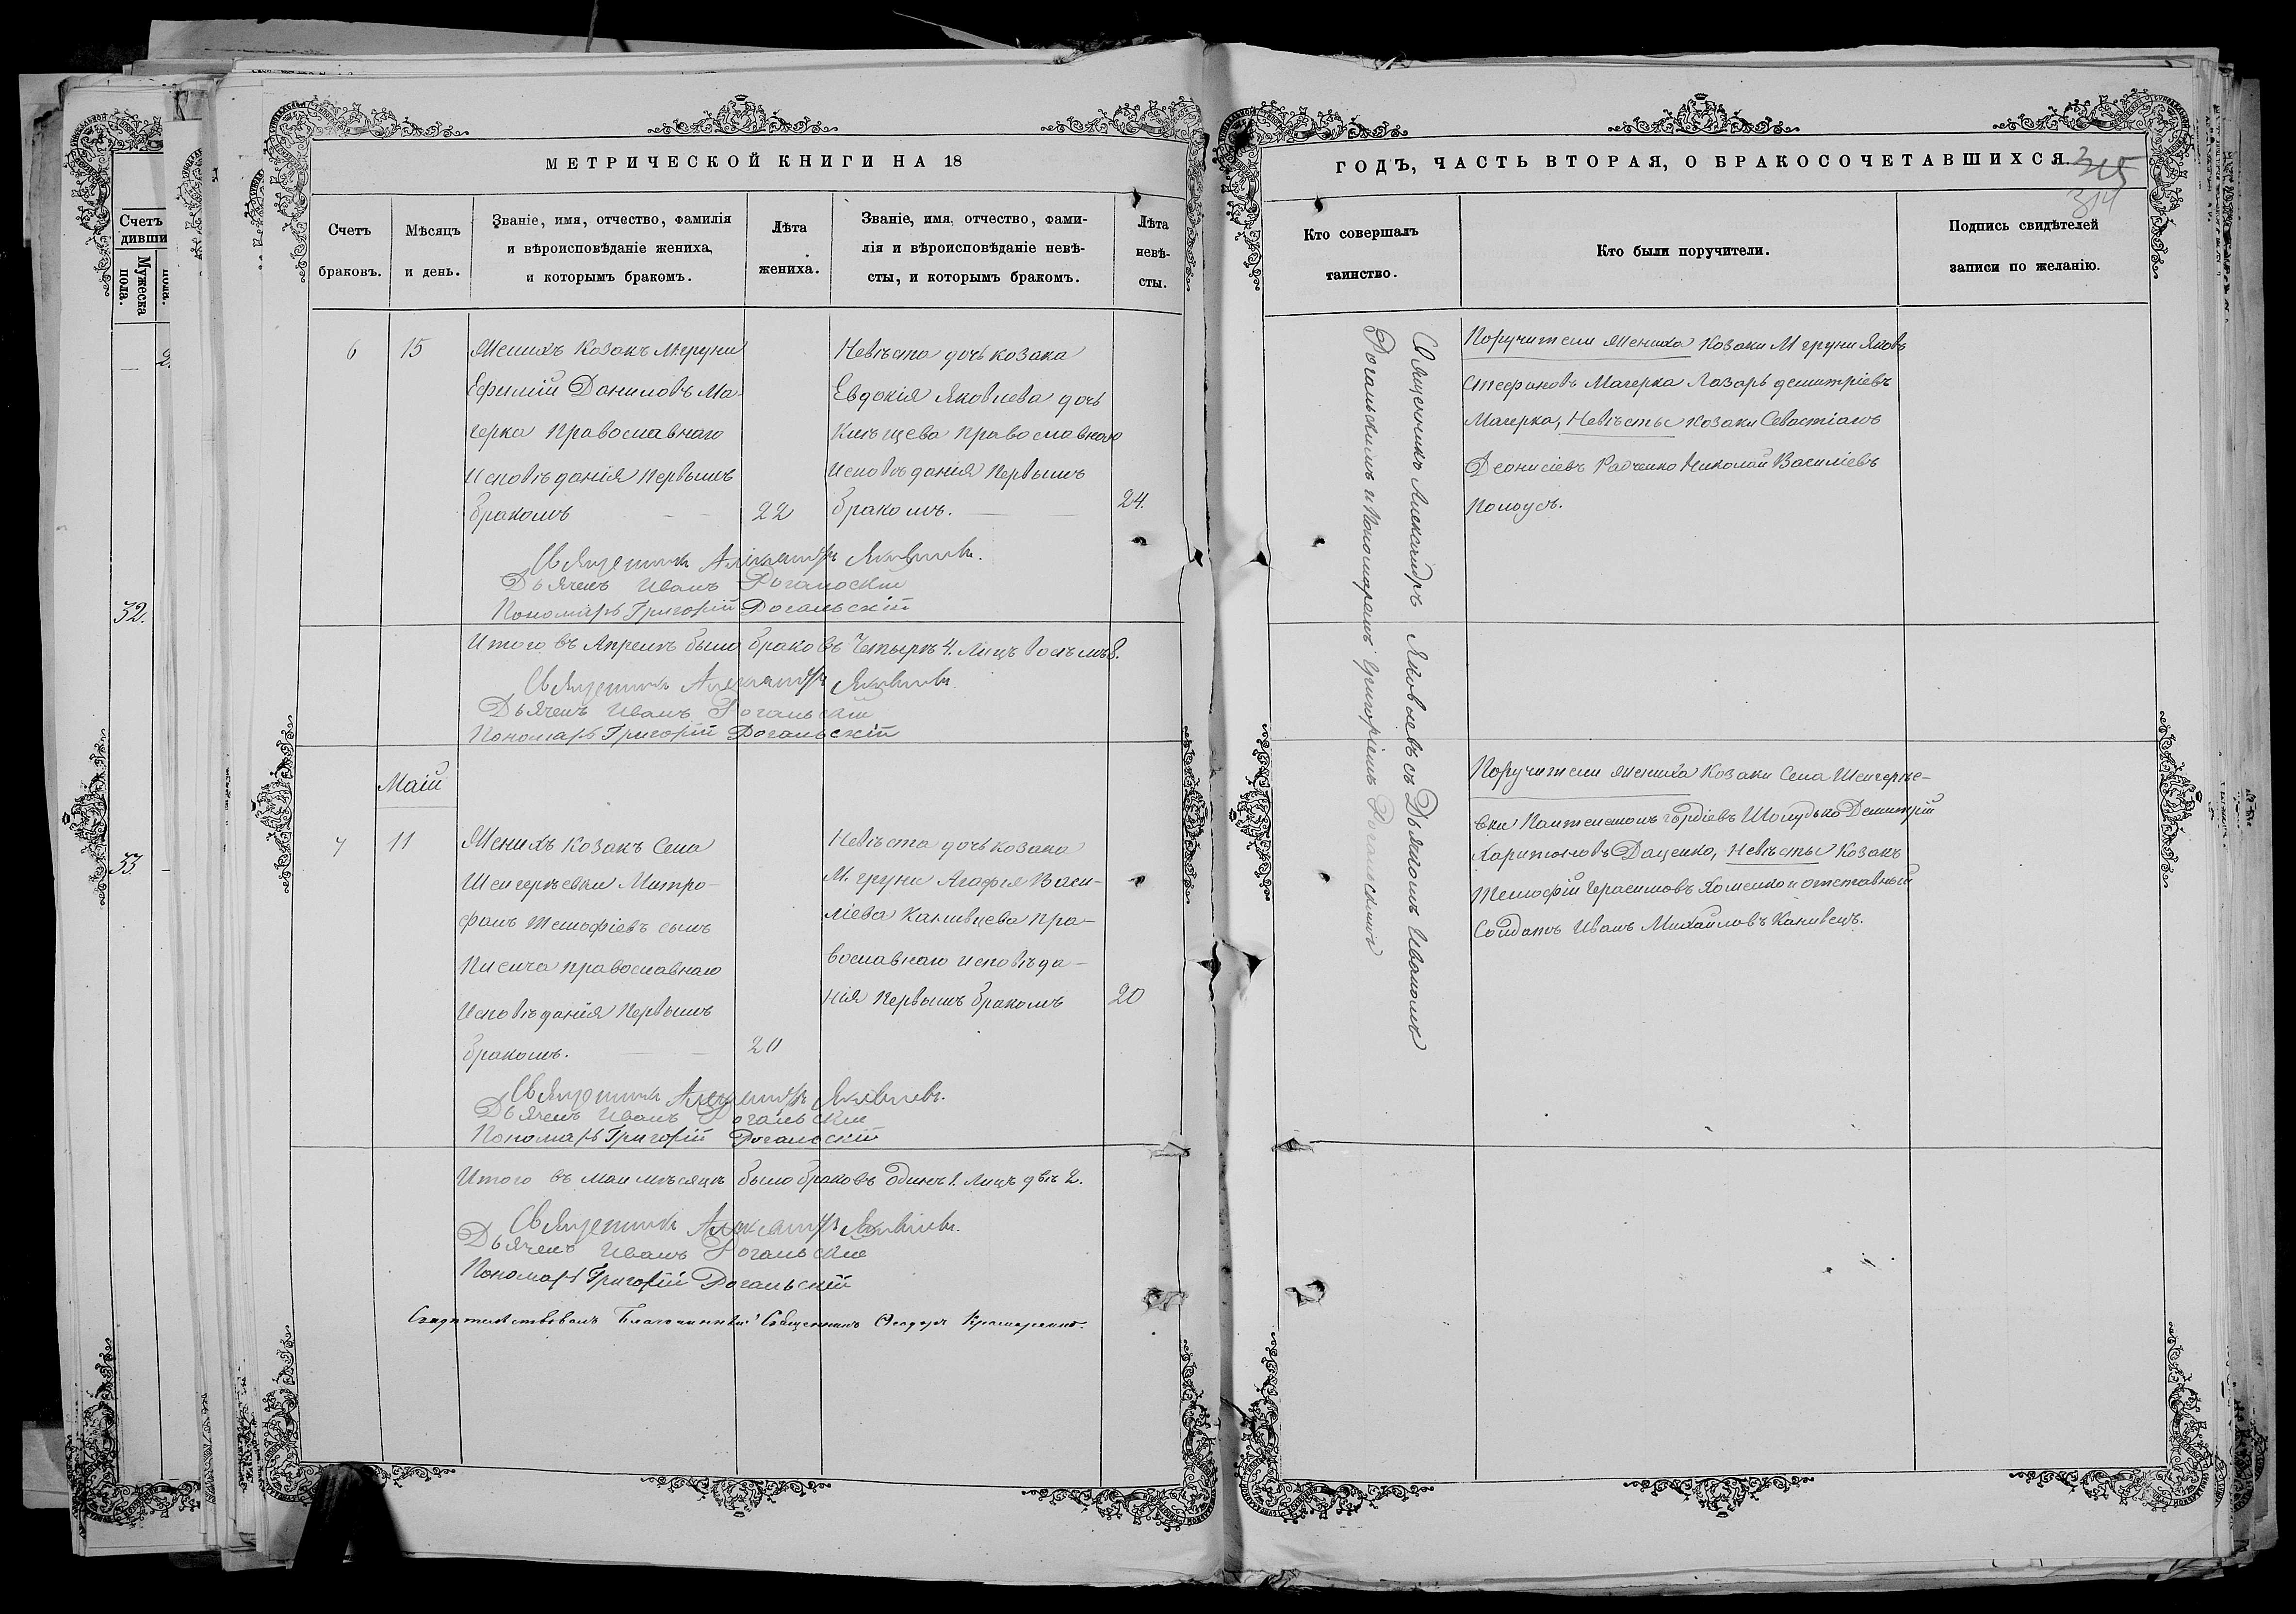 МЕТРИЧЕСКОЙ КНИГИ НА 18
Счетъ
браковъ.
Мѣсяцъ
и день.
Званіе, имя, отчество, фамилія
и вѣроисповѣданіе жениха,
и которымъ бракомъ.
Лѣта
жениха.
Званіе, имя, отчество, фами-
лія и вѣроисповѣданіе невѣ-
сты, и которымъ бракомъ.
Лѣта
невѣ-
сты.
6
15
Женихъ козакъ М. Груни
Ефимій Даниловъ Ма-
герка православнаго
исповѣданія первымъ
бракомъ
22
Невѣста дочь козака
Евдокія Яковлева дочь
православнаго
исповѣданія первымъ
бракомъ.
24.
Священникъ Александръ Яковлевъ.
Дьячекъ Иванъ Рогальскій
Пономарь Григорій Рогальскій
Итого въ Апрелѣ было браковъ четыре 4. лицъ восемь 8.
Священникъ Александръ Яковлевъ.
Дьячекъ Иванъ Рогальскій
Пономарь Григорій Рогальскій
Маій
7
11
Женихъ козакъ села
Шенгерѣевки Митро-
фанъ Темофіевъ сынъ
православнаго
исповѣданія первымъ
бракомъ.
20
Невѣста дочь козака
М. Груни Агафія Васи-
ліева Канивцева пра-
вославнаго исповѣда-
нія первымъ бракомъ
20
Священникъ Александръ Яковлевъ.
Дьячекъ Иванъ Рогальскій
Пономарь Григорій Рогальскій
Итого въ маи мѣсяцѣ было браковъ одинъ 1. лицъ двѣ 2.
Священникъ Александръ Яковлевъ.
Дьячекъ Иванъ Рогальскій
Пономарь Григорій Рогальскій
Свидѣтельствовалъ Благочинный Священникъ Феодоръ
ГОДЪ, ЧАСТЬ ВТОРАЯ, О БРАКОСОЧЕТАВШИХСЯ.
315
314
Кто совершалъ
таинство.
Кто были поручители.
Подпись свидѣтелей
записи по желанію.
Священникъ Александръ Яковлевъ съ Дьякомъ Иваномъ
Рогальскимъ и Пономаремъ Григоріемъ Рогальскимъ
Поручители жениха козаки М. Груни Яковъ
Стефановъ Магерка Лазарь Демитріевъ
Магерка, Невѣсты козаки Севастіанъ
Деонисіевъ Радченко Николай Василіевъ
Полоусъ.
Поручители жениха козаки села Шенгерѣе-
вки Пантелемонъ Гордіевъ Шолудько Демитрій
Харитоновъ Даценко, Невѣсты козакъ
Темофій Герасимовъ Хоменко и отставный
Солдатъ Иванъ Михайловъ Канивецъ.
Счетъ
дивши
Мужеска
пола.
32.
33